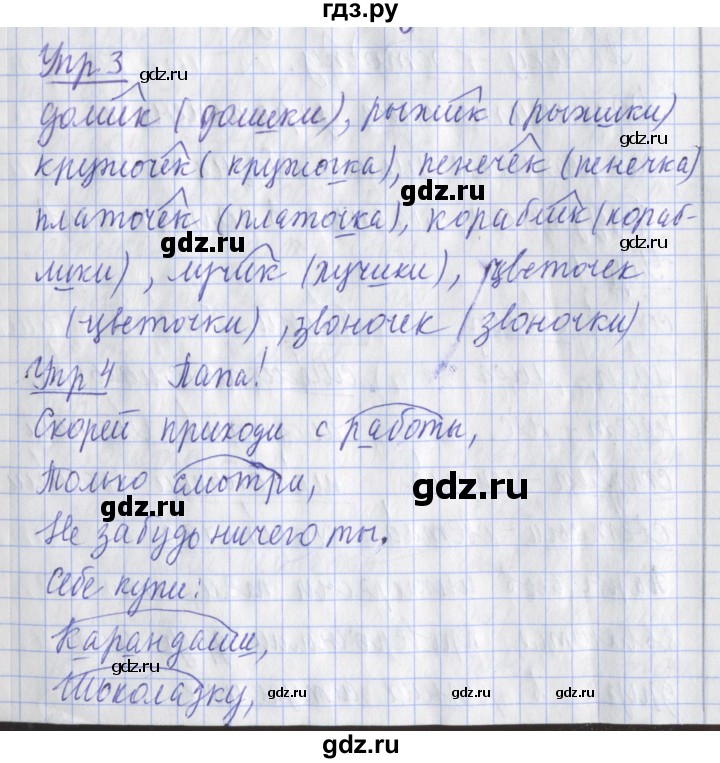 гдз.ру
Упр 3
gdz.ru
домик (домики), рыжик (рыжики)
gdz.ru
кружочек (кружочка), пенечек (пенечка)
gdz.ru
платочек (платочка), кораблик (кораб-
gdz.ru gdz.ru
лики), лучик (лучики), цветочек
(цветочки), звоночек (звоночки)
gdz.ru
Упр 4 Папа!
Скорей приходи с работы,
gdz.ru
Только смотри,
gdz.ru gdz.ru
Не забудь ничего ты.
Себе купи:
Карандаши,
gdz.ru
Шоколадку,
gdz.ru gdz.ru
gdz.ru